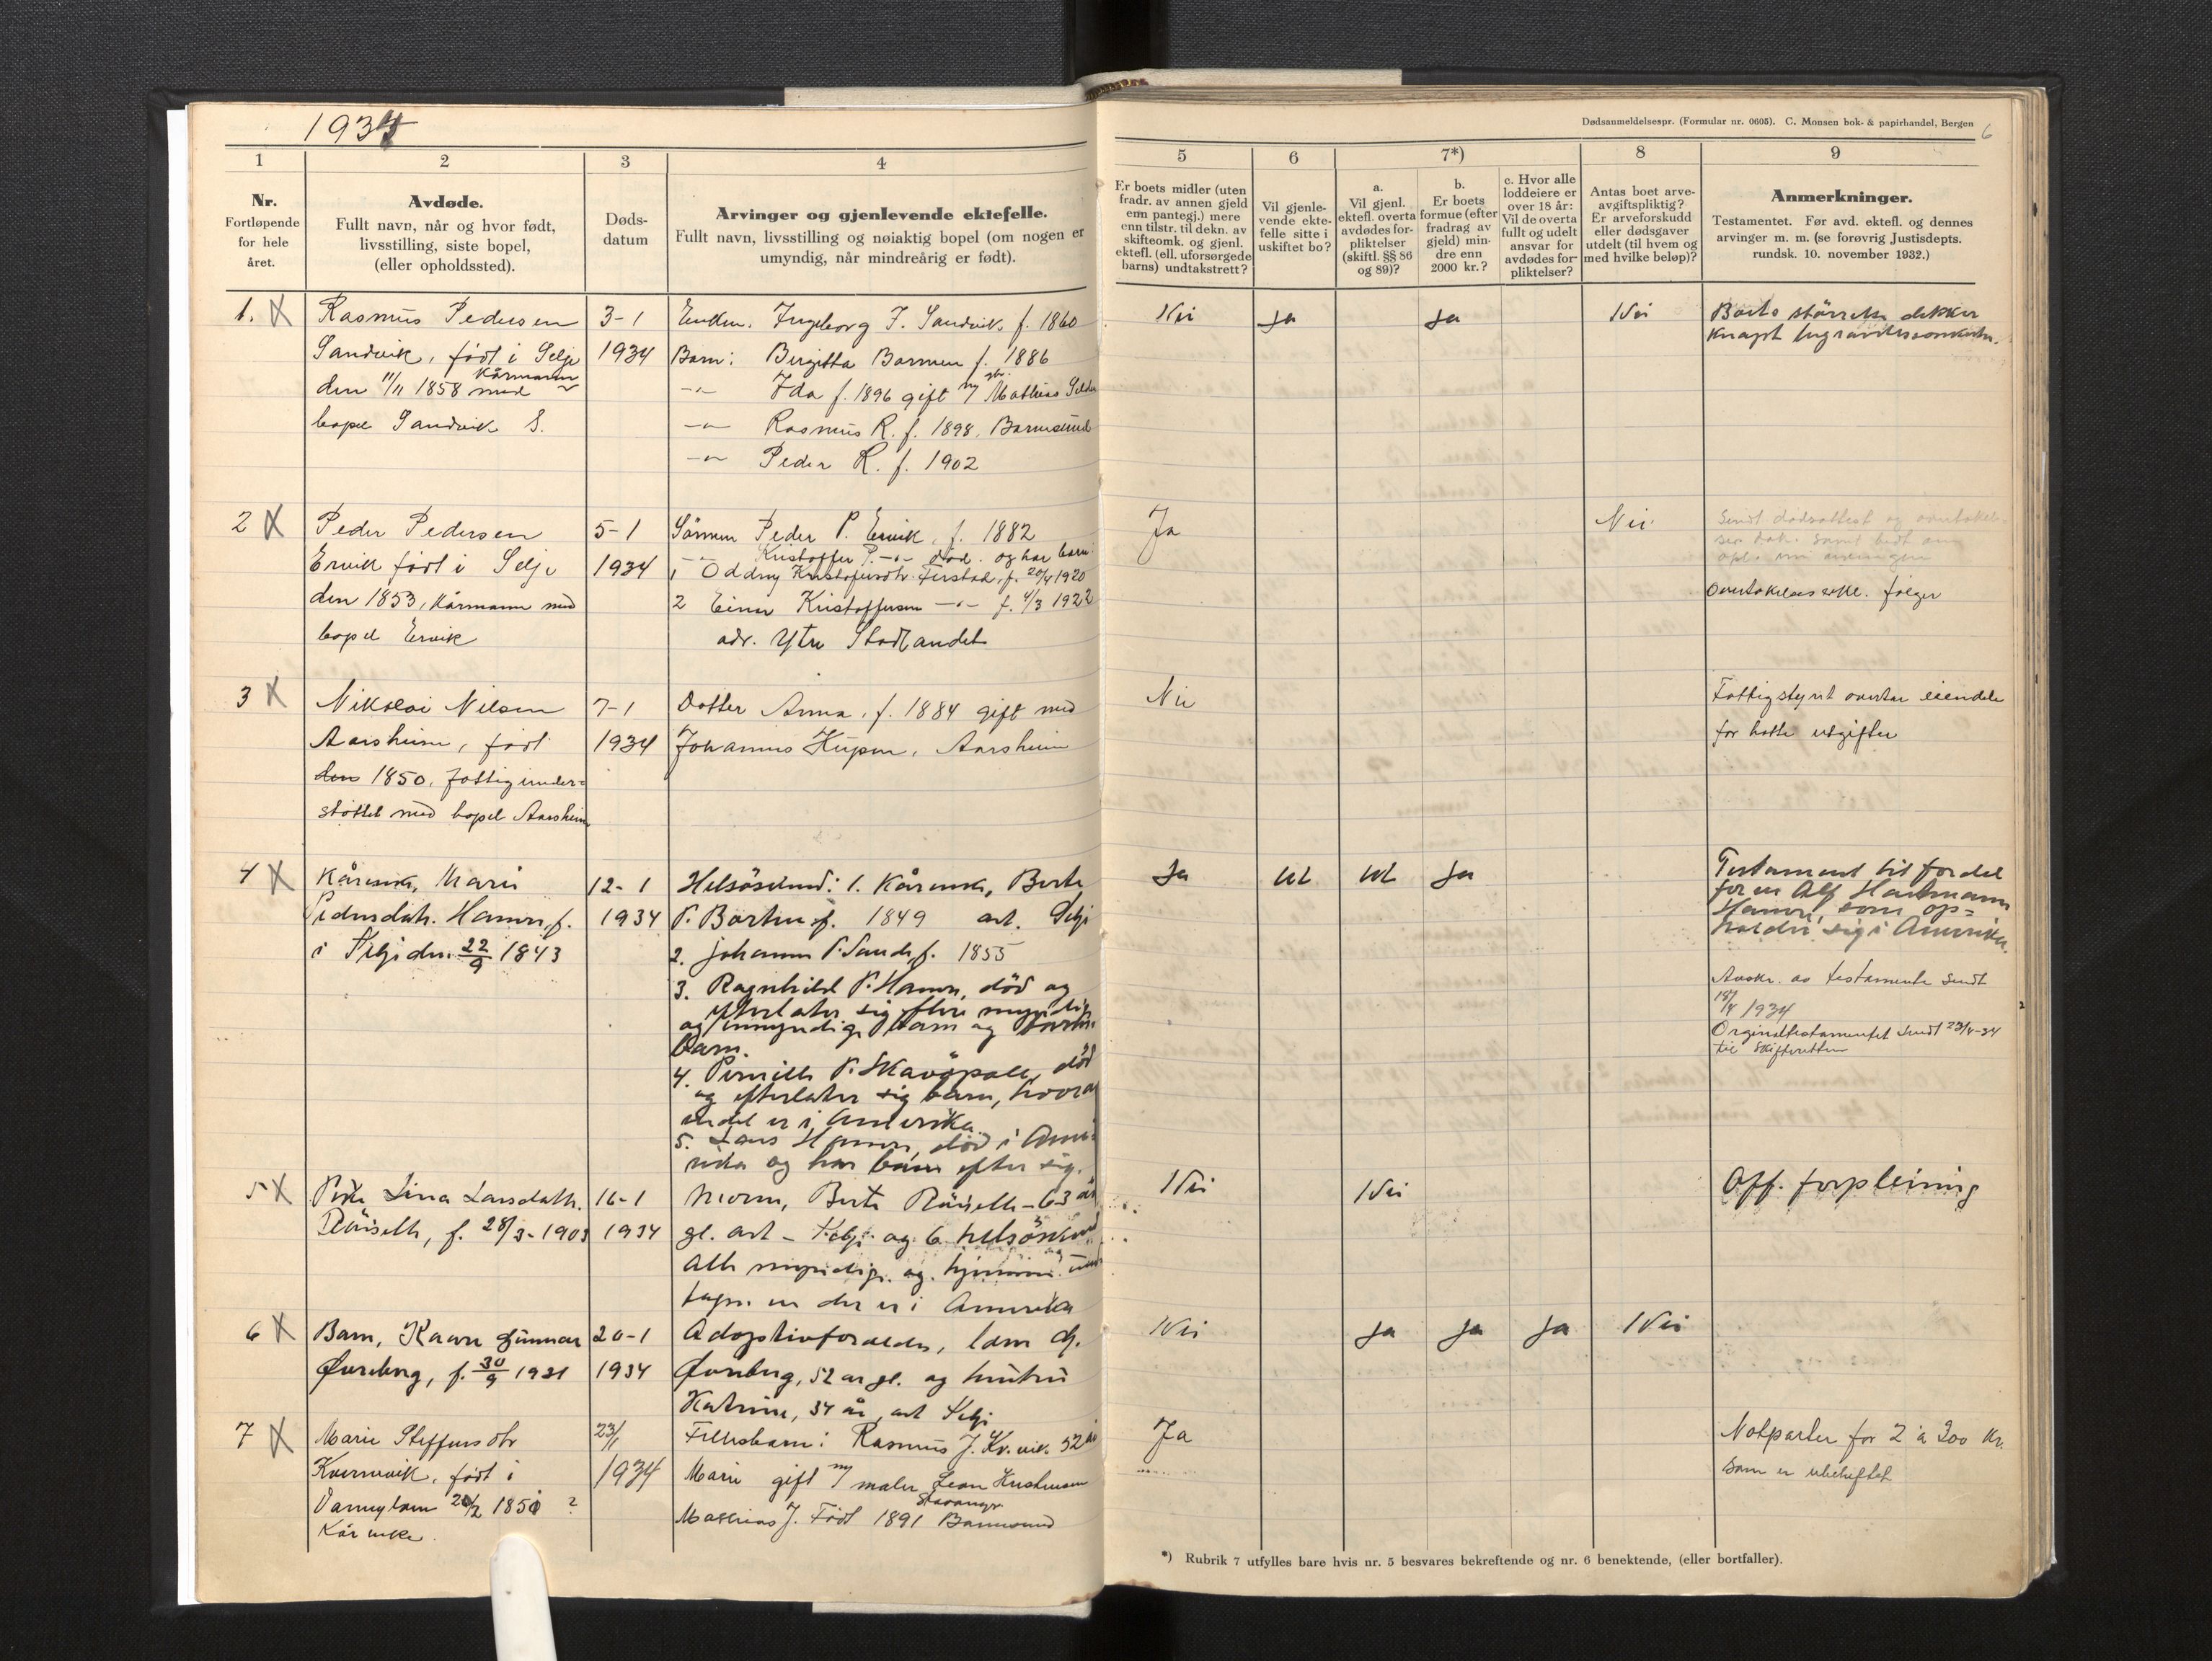 1934
Dødsanmeldelsespr. (Formular nr. 0605). C. Monsen bok- & papirhandel, Bergen
6
1
2
3
4
5
6
7*)
8
9
Nr.
Fortløpende
for hele
året.
Avdøde.
Fullt navn, når og hvor født,
livsstilling, siste bopel,
(eller opholdssted).
Døds-
datum
Arvinger og gjenlevende ektefelle.
Fullt navn, livsstilling og nøiaktig bopel (om nogen er
umyndig, når mindreårig er født).
Er boets midler (uten
fradr. av annen gjeld
enn pantegj.) mere
enn tilstr. til dekn. av
skifteomk. og gjenl.
ektefl. (ell. uforsørgede
barns) undtakstrett?
Vil gjenle-
vende ekte-
felle sitte i
uskiftet bo?
a.
Vil gjenl.
ektefl. overta
avdødes for-
pliktelser
(skiftl. §§ 86
og 89)?
b.
Er boets
formue (efter
fradrag av
gjeld) min-
dre enn
2000 kr.?
c. Hvor alle
loddeiere er
over 18 år:
Vil de overta
fullt og udelt
ansvar for
avdødes for-
pliktelser?
Antas boet arve-
avgiftspliktig?
Er arveforskudd
eller dødsgaver
utdelt (til hvem og
med hvilke beløp)?
Anmerkninger.
Testamentet. Før avd. ektefl. og dennes
arvinger m. m. (se forøvrig Justisdepts.
rundsk. 10. november 1932.)
1. X
Rasmus Pedersen
Sandvik, født i Selje
Kårmann
den 11/11 1858 med
bopel Sandvik S.
3-1
1934
Enken. Ingeborg J. Sandvik f. 1860
Barn: Birgitta Barmen f. 1886
-"- Ida f. 1896 gift m/ gbr. Mathias
-"- Rasmus R. f. 1898. Barmsund
-"- Peder R. f. 1902
Nei
Ja
Ja
Nei
Boets större̱lse dekker
knapt begravelsesomkostn.
2 X
Peder Pedersen
Ervik født i Selje
den 1853, Kårmann med
bopel Ervik
5-1
1934
Sönnen Peder P. Ervik, f. 1882
-"- Kristoffer P. -"- död. og har barn:
1 Oddny Kristofersdtr. f. 20/4 1920
2 Einar Kristoffersen -"- f. 4/3 1922
adr. Ytre Stadlandet
Ja
Nei
Sendt dödsattest og
samt bedt om
opl. om arvingene
følger
3 X
Nikolai Nilsen
Aarsheim, født
den 1850, fattigunder-
støttet med bopel Aarsheim
7-1
1934
Datter Anna, f. 1884 gift med
Johannes Hupen, Aarsheim
Nei
Fattigstyret overtar eiendele
for hatte utgifter
4 X
Kårenke, Mari
Pedersdatr. Hamre, f.
i Selje den 22/9 1843
12-1
1934
Helsöskend: 1. Kårenke, Berte
P. f. 1849 ad. Selje
2. Johanne P. Sande, f. 1855
3. Ragnhild P. Hamre, död og
efterlater sig flere myndige
og umyndige barn og barne
barn.
4. Pernille P. Skavöpoll, död
og efterlater sig barn, hvorav
endel er i Amerika.
5. Lars Hamre, död i Ame-
rika og har barn efter sig.
Ja
Ja
Testament til fordel
for en Alf Hartmann
Hamre, som op-
holder sig i Amerika.
Avskr. av testamente sendt
18/4 1934
Orginaltestamentet sendt 23/4-34
til skifteretten
5 X
Pike Lina Larsdatr.
f. 28/3-1903
16-1
1934
Moren, Berte 63 år
gl. ad - Selje og 6 helsösken
alle myndige og hjemme
tagen en der er i Amerika
Nei
Nei
Off. forpleining
6 X
Barn, Kaare Gunnar
Öureberg, f. 30/9 1931
20-1
1934
Adoptivforeldre,
Öureberg, 52 år gl. og hustru
Katrine, 34 år, ad Selje
Nei
Ja
Ja
Ja
Nei
7 X
Marie Steffensdtr
Kvernevik, født i
20/2 1850 ?
Kårenke.
23/1
1934
Fellesbarn: Rasmus J. Kv.vik. 52 år
Marie gift m/ maler
Stavanger
Mathias J. Født 1891 Barmsund
Ja
Notparter for 2 à 300 kr.
som er ubeheftet
*) Rubrik 7 utfylles bare hvis nr. 5 besvares bekreftende og nr. 6 benektende, (eller bortfaller).